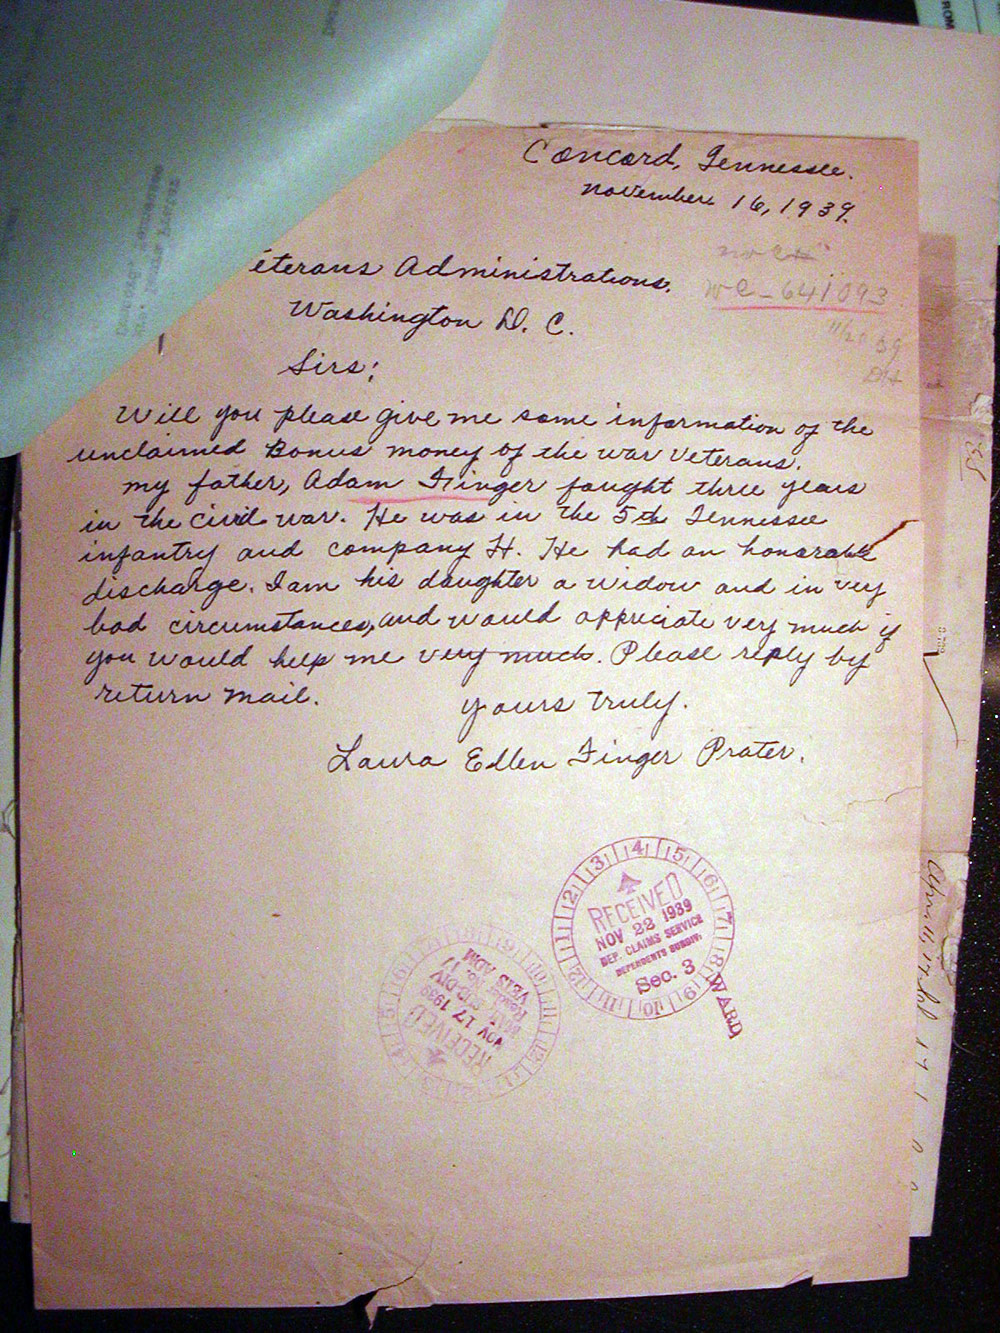 Concord, Tennessee.
November 16, 1939.
no Ck
WC-641093
11/20 39
eterans Administrations.
Washington D. C.
Sirs;
Will you please give me some information of the
unclaimed Bonus money of the war veterans.
My father, Adam Finger fought three years
in the civil war. He was in the 5th Tennessee
infantry and company H. He had an honorable
discharge. I am his daughter a widow and in very
bad circumstances, and would appreciate very much if
you would help me very much. Please reply by
return mail.
Yours Truly.
Laura Ellen Finger Prater.
1 2 3 4 5 6 7 8 9 10 11 12
RECEIVED
NOV 22 1939
DEP. CLAIMS SERVICE
DEPENDENTS SUBDIV.
Sec. 3
WARD
RECEIVED
NOV 17 1939
MAIL SUB-DIV
VETS ADM